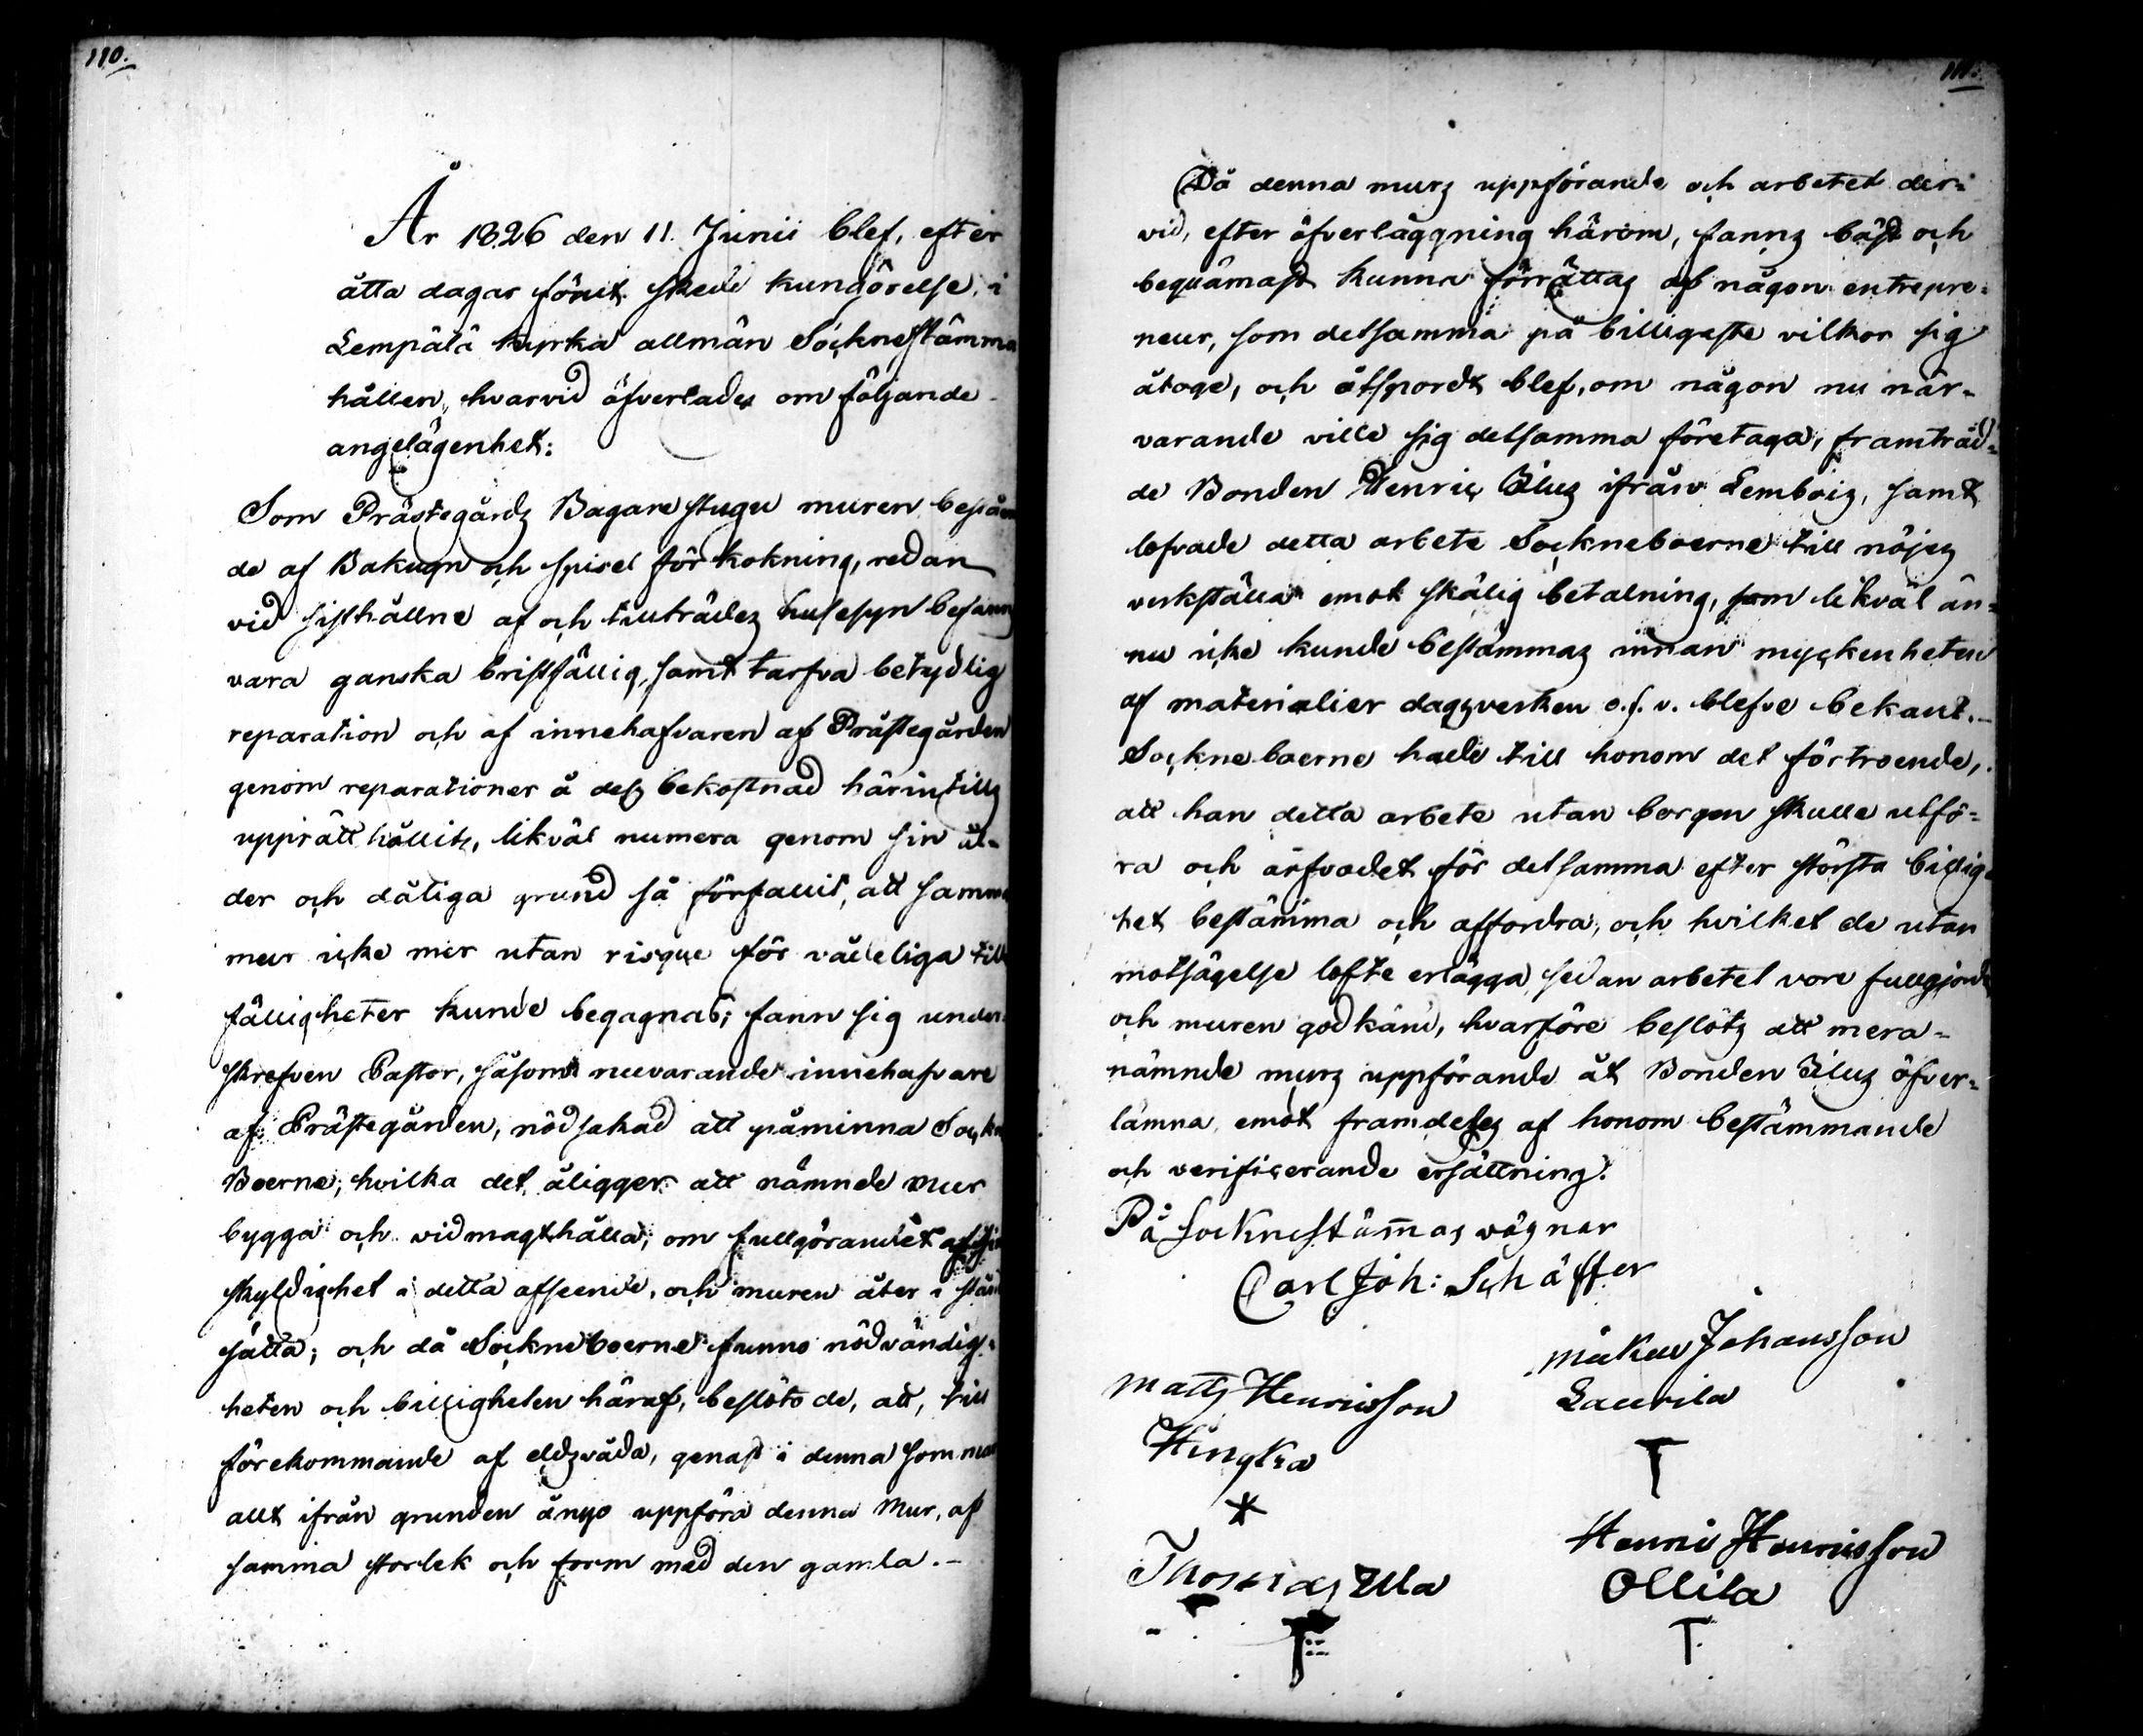 110.
År 1826 den 11. Junii blef, efter
åtta dagar förut skedd kungörelse, i
Lempälä kyrka allmän Sockne stämma
hållen, hvarvid öfverlades om följande
angelägenhet:
Som Prästegårds Bagare stugu muren beståen
de af Bakugn och spisel för kokning, redan
vid sisthållne af och tillträdes husesyn befanns
vara ganska bristfällig, samt tarfva betydlig
reparation och af innehafvaren af Prästegården
genom reparationer å dess bekostnad härintills
upprätt hållits, likväl numera genom sin ål-
der och dåliga grund så förfallit, att samma
mur icke mer utan risque för vådeliga till
fälligheter kunde begagnas; fann sig under-
skrefven Pastor, såsom nuvarande innehafvare
af Prästegården, nödsakad att påminna Sockne
Boerne, hvilka det åligger att nämnde mur
bygga och vidmagthålla, om fullgörandet af sin
skyldighet i detta afseende, och muren åter i stånd
sätta; och då Sockneboerne funno nödvändig-
heten och billigheten häraf, beslöto de, att, till
förekommande af eldsvåda, genast i denna sommar
allt ifrån grunden ånyo uppföra denna Mur, af
samma storlek och form med den gamla.-
111.
Då denna murs uppförande och arbetet der-
vid, efter öfverläggning härom, fanns bäst och
bequämast kunna förrättas af någon entrepre-
neur, som detsamma på billigaste vilkor sig
åtoge, och åtspordt blef, om någon nu när-
varande ville sig detsamma företaga, framträd-
de Bonden Henric Ilus ifrån Lembois, samt
lofvade detta arbete Sockneboerne till nöjes
verkställa emot skälig betalning, som likväl än-
nu icke kunde bestämmas innan myckenheten
af materialier dagsverken o.s.v. blefve bekant.-
Sockneboerne hade till honom det förtroende,
att han detta arbete utan borgen skulle utfö-
ra och arfvodet för detsamma efter största billig-
het bestämma och affordra, och hvilket de utan
motsägelse lofte erlägga sedan arbetet vore fullgjordt
och muren godkänd, hvarföre beslöts att mera-
nämnde murs uppförande åt Bonden Ilus öfver-
lämna emot framdeles af honom bestämmande
och verificerande ersättning.
På Socknestämas vägnar
Carl Joh: Schäffer
Matts Henricsson
Hingka
Thomas Ula
Johansson
Laurila
Henric Henricsson
Ollila